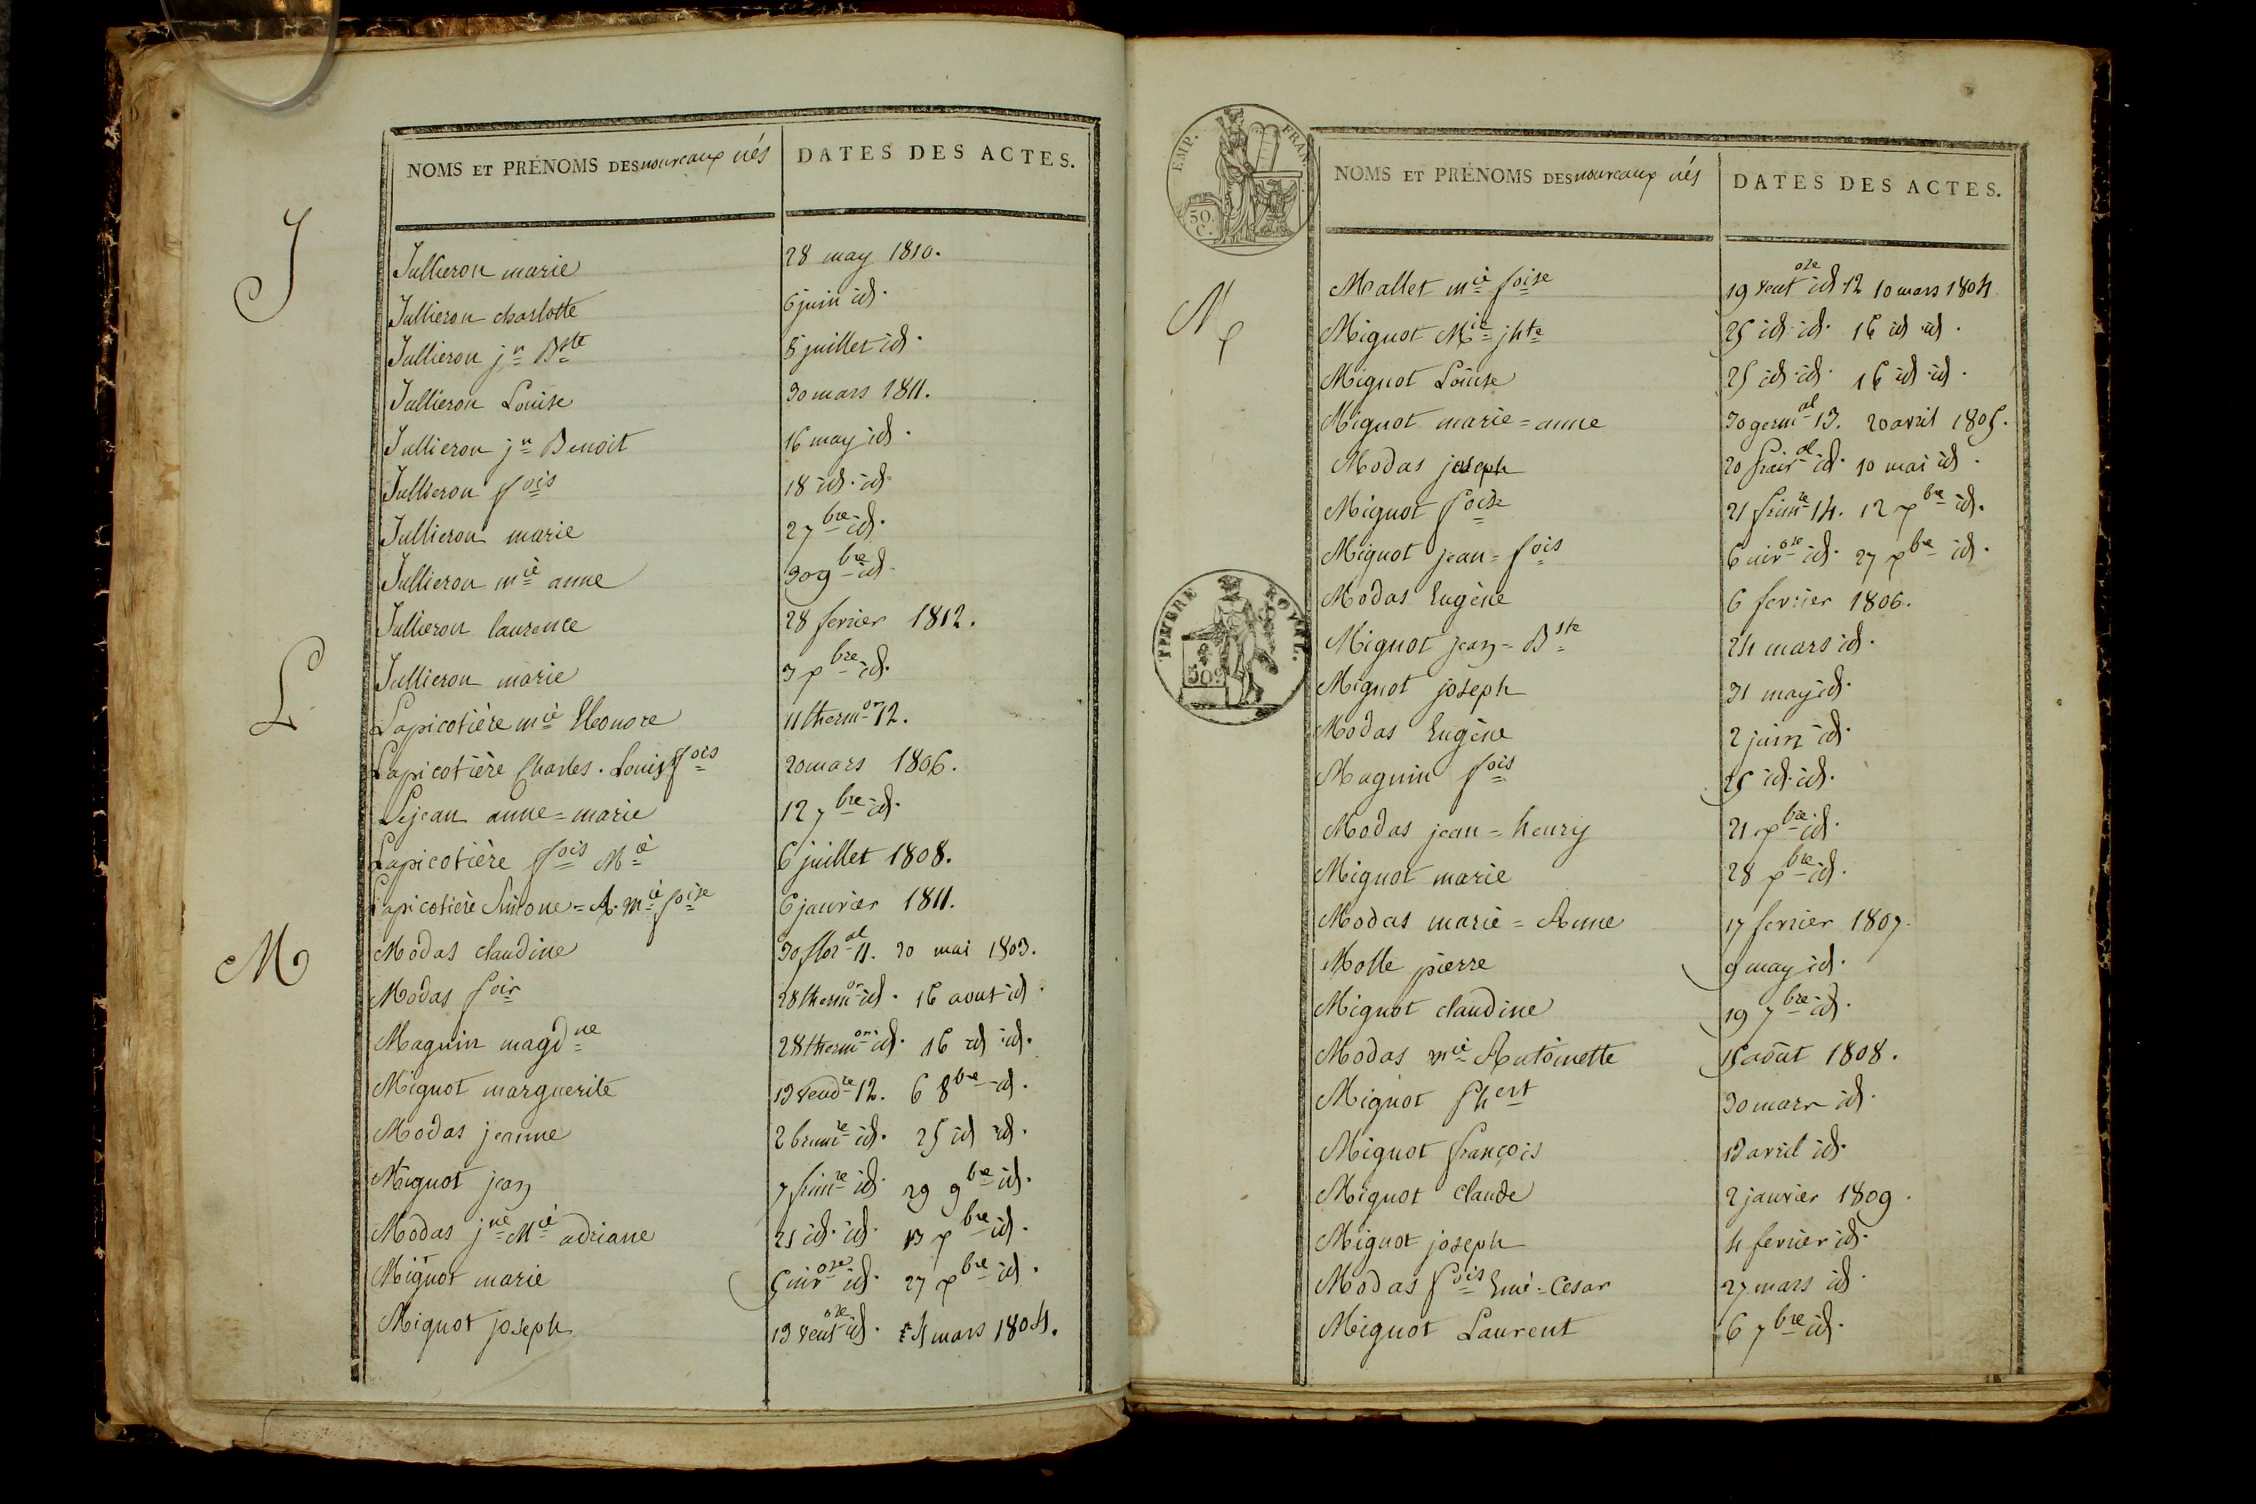 NOMS ET PRÉNOMS DES nouveaux nés DATES DES ACTES.
J
Jullieron marie 28 may 1810.
Jullieron charlotte 6 juin id.
Jullieron jn Bste 8 juillet id.
Jullieron Louise 30 mars 1811.
Jullieron jn Benoit 16 may id.
Jullieron fois 18 id. id.
Jullieron marie 2 7bre id.
Jullieron mie anne 30 9bre id.
Jullieron laurence 28 fevrier 1812.
Jullieron marie 3 xbre id.
L
Lapicotière mie Eléonore 11 thermor 12.
Lapicotière Charles. Louis fois 20 mars 1806.
Lejean anne=marie 12 7bre id.
Lapicotière fois Mie 6 juillet 1808.
Lapicotière =A. mie foise 6 janvier 1811.
M
Modas claudine 30 floral 11. 20 mai 1803.
Modas fois 28 thermor id. 16 aout id.
Maguin magdne 28 thermor id. 16 id id.
Mignot marguerite 13 vendre 12. 6 8bre id.
Modas jeanne 2 brumre id. 25 id id.
Mignot jean 7 frimre id. 29 9bre id.
Modas jne Mie adriane 21 id. id. 13 xbre id.
Mignot marie 5 nivose id. 27 xbre id.
Mignot joseph 13 ventose id. 4 mars 1804.
EMP. FRAN.
50. C.
NOMS ET PRÉNOMS DES nouveaux nés DATES DES ACTES.
M
Mallet mie foise 19 ventose id 12 10 mars 1804
Mignot Mie jhte 25 id. id. 16 id id.
Mignot Louise 25 id. id. 16 id. id.
Mignot marie=anne 30 germal 13. 20 avril 1805.
Modas joseph 20 id. 10 mai id.
Mignot foise 21 frimre 14. 12 xbre id.
Mignot jean=fois 6 nivose id. 27 xbre id.
TIMBRE ROYAL.
50c
Modas Eugène 6 fevrier 1806.
Mignot jean=Bste 24 mars id.
Mignot joseph 31 may id.
Modas Eugène 2 juin id.
Maguin fois 25 id. id.
Modas jean=henry 21 xbre id.
Mignot marie 28 xbre id.
Modas marie=Anne 17 fevrier 1807.
Molle pierre 9 may id.
Mignot claudine 19 7bre id.
Modas mie Antoinette 15 août 1808.
Mignot 30 mars id.
Mignot françois 13 avril id.
Mignot claude 2 janvier 1809.
Mignot joseph 4 fevrier id.
Modas fois Emé=Cesar 27 mars id.
Mignot Laurent 6 7bre id.